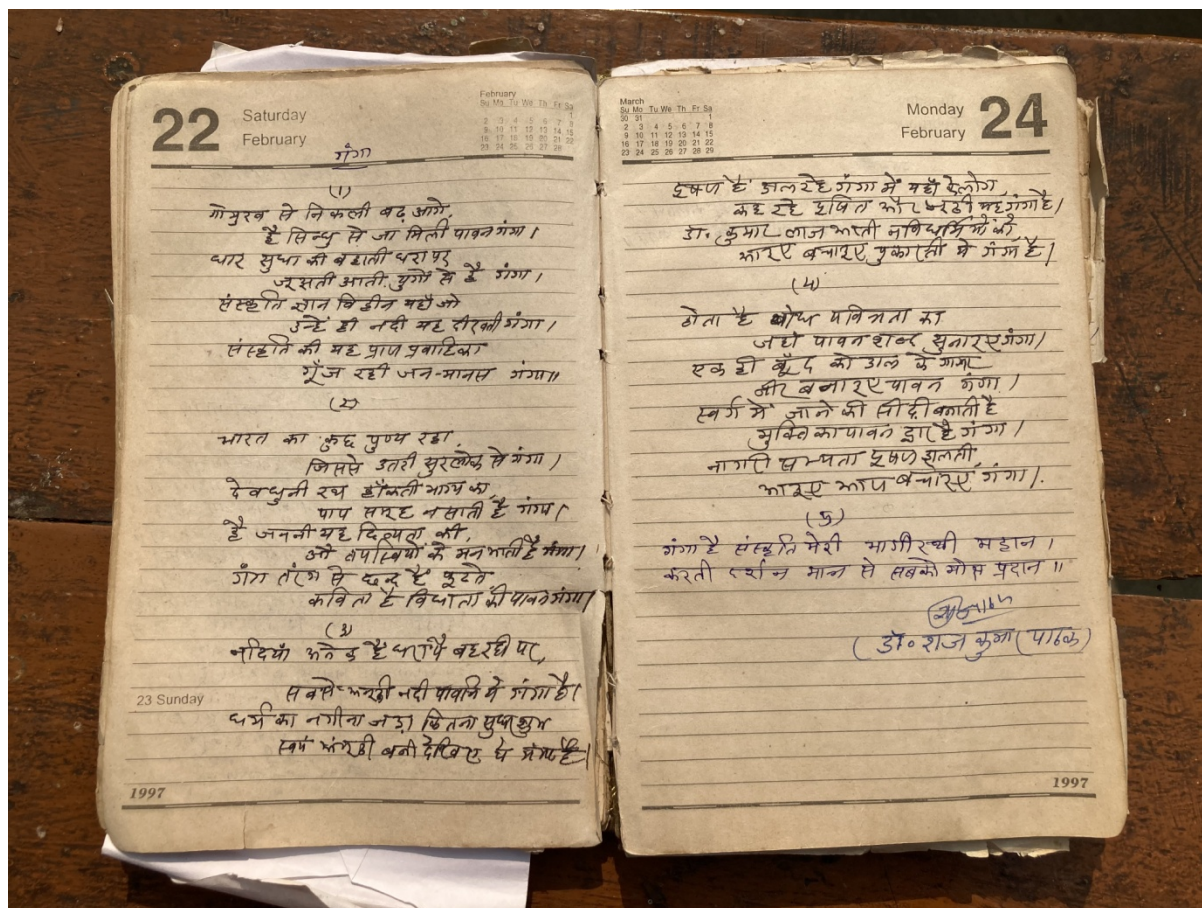 22
Saturday
February
February
Su Mo Tu We Th Fr Sa
1
2 3 4 5 6 7 8
9 10 11 12 13 14 15
16 17 18 19 20 21 22
23 24 25 26 27 28
गंगा
(1)
गोमुख से निकली बढ़ आगे,
है सिन्धु से जा मिली पावन गंगा।
धार सुधा की बहाती धरा पर
सरसती आती युगों से है गंगा।
संस्कृति ज्ञान विहीन यहाँ जो
उन्हें ही नदी यह दीखती गंगा।
संस्कृति की यह प्राण प्रवाहिका
गूँज रही जन-मानस गंगा॥
(2)
भारत का कुछ पुण्य रहा
जिससे उतरी सुरलोक से गंगा।
देवधुनी रथ हाँकती भाग्य का,
पाप समूह नसाती है गंगा।
है जननी यह दिव्यता की,
औ तपस्वियों के मन भाती है गंगा।
गंग तंरग से छन्द हैं फूटते
कविता है विधाता की पावन गंगा।
(3)
नदियां अनेक हैं धरा पै बह रही पर,
सबसे अनूठी नदी पावनि ये गंगा है।
धर्म का नगीना जड़ा कितना सुधा शुभ
स्वर्ण अंगूठी बनी देखिए ये गंगा है।
23 Sunday
1997
March
Su Mo Tu We Th Fr Sa
30 31 1
2 3 4 5 6 7 8
9 10 11 12 13 14 15
16 17 18 19 20 21 22
23 24 25 26 27 28 29
Monday
February
24
दूषण हैं डाल रहे गंगा में यहाँ के लोग,
कह रहे दूषित और यह गंगा है।
डॉ. कुमार लाज आती न
आइए बचाइए पुकारती ये गंगा है।
(4)
होता है बोध पवित्रता का
जहाँ पावन शब्द सुनाए गंगा।
एक ही बूँद को डाल के
नीर बनाइए पावन गंगा।
स्वर्ग में जाने की सीढ़ी बनाती है
मुक्ति का पावन द्वार है गंगा।
नागरी सभ्यता दूषण डालती,
आइए आप बचाइए गंगा।
(5)
गंगा है संस्कृति मेरी भागीरथी महान।
करती दर्शन मात्र से सबको मोक्ष प्रदान॥
(डॉ० राज कुमार पाठक)
1997